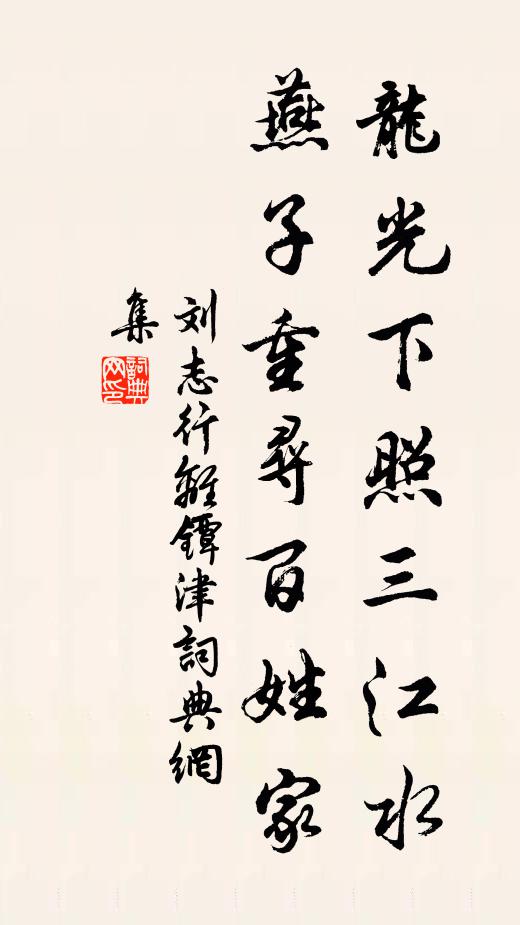 龍光下照三江水
燕子重尋百姓家
刘志行離鐔津詞典網
集
詞典
网印